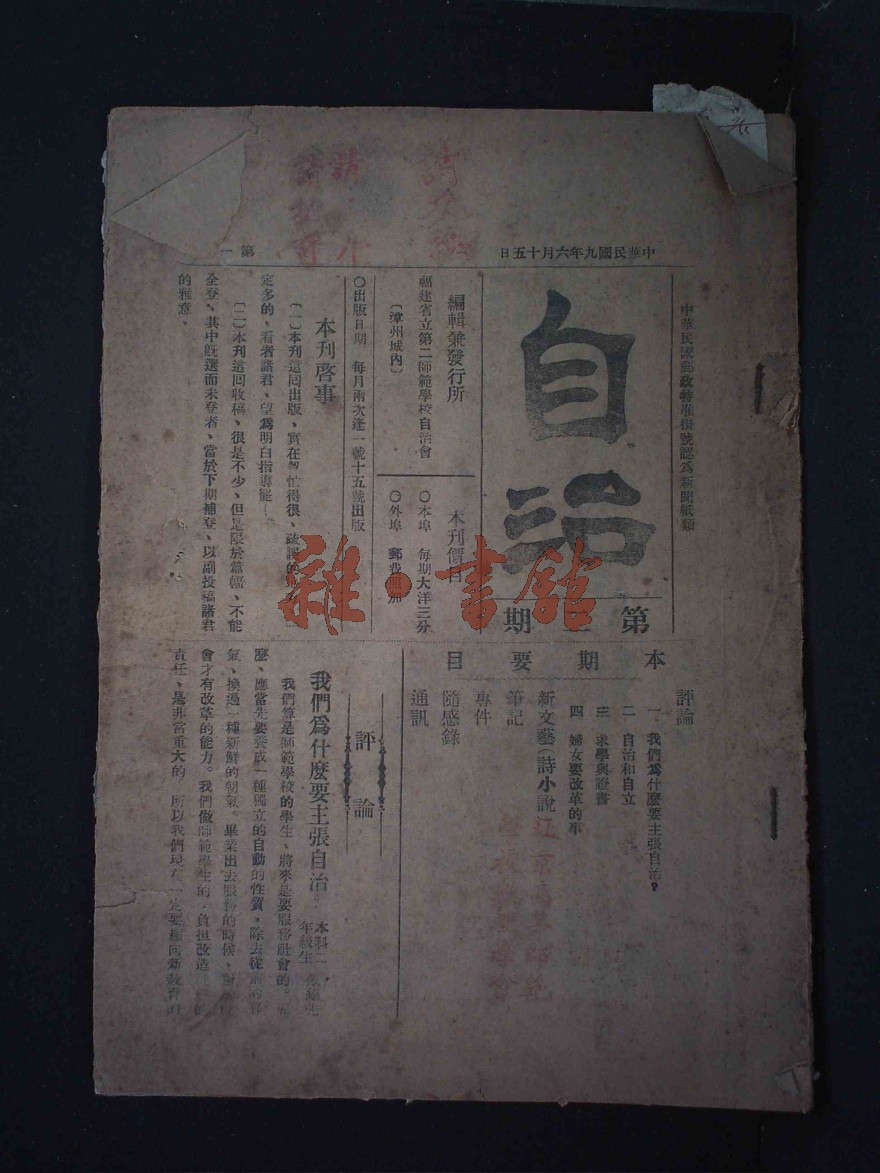 中華民國九年六月十五日
第一
中華民國郵政特准掛號認爲新聞紙類
自治
第三期
編輯兼發行所
福建省立第二師範學校自治會
〔漳州城內〕
本刊價目
〇本埠 每期大洋三分
〇外埠 郵費照加
〇出版日期 每月兩次逢一號十五號出版
本刊啓事
〔一〕本刊這回出版、實在匆忙得很、
定多的、看者諸君、望爲明白指導罷！
〔二〕本刊這回收稿、很是不少、但是限於篇幅、不能
全登、其中旣選而未登者、當於下期補登、以副投稿諸君
的雅意、
本期要目
評論
一 我們爲什麽要主張自治？
二 自治和自立
三 求學與證書
四 婦女要改革的事
新文藝（詩小說）
筆記
專件
隨感錄
通訊
評論
我們爲什麽要主張自治
本科二年級生
我們算是師範學校的學生、將來是要服務社會的。
麽、應當先要養成一種獨立的自動的性質，除去從前
氣、換過一種新鮮的朝氣。畢業出去服務的時候、
會才有改革的能力。我們做師範學生的，負担改造
責任、是非常重大的 所以我們現在一定要
雜·書館